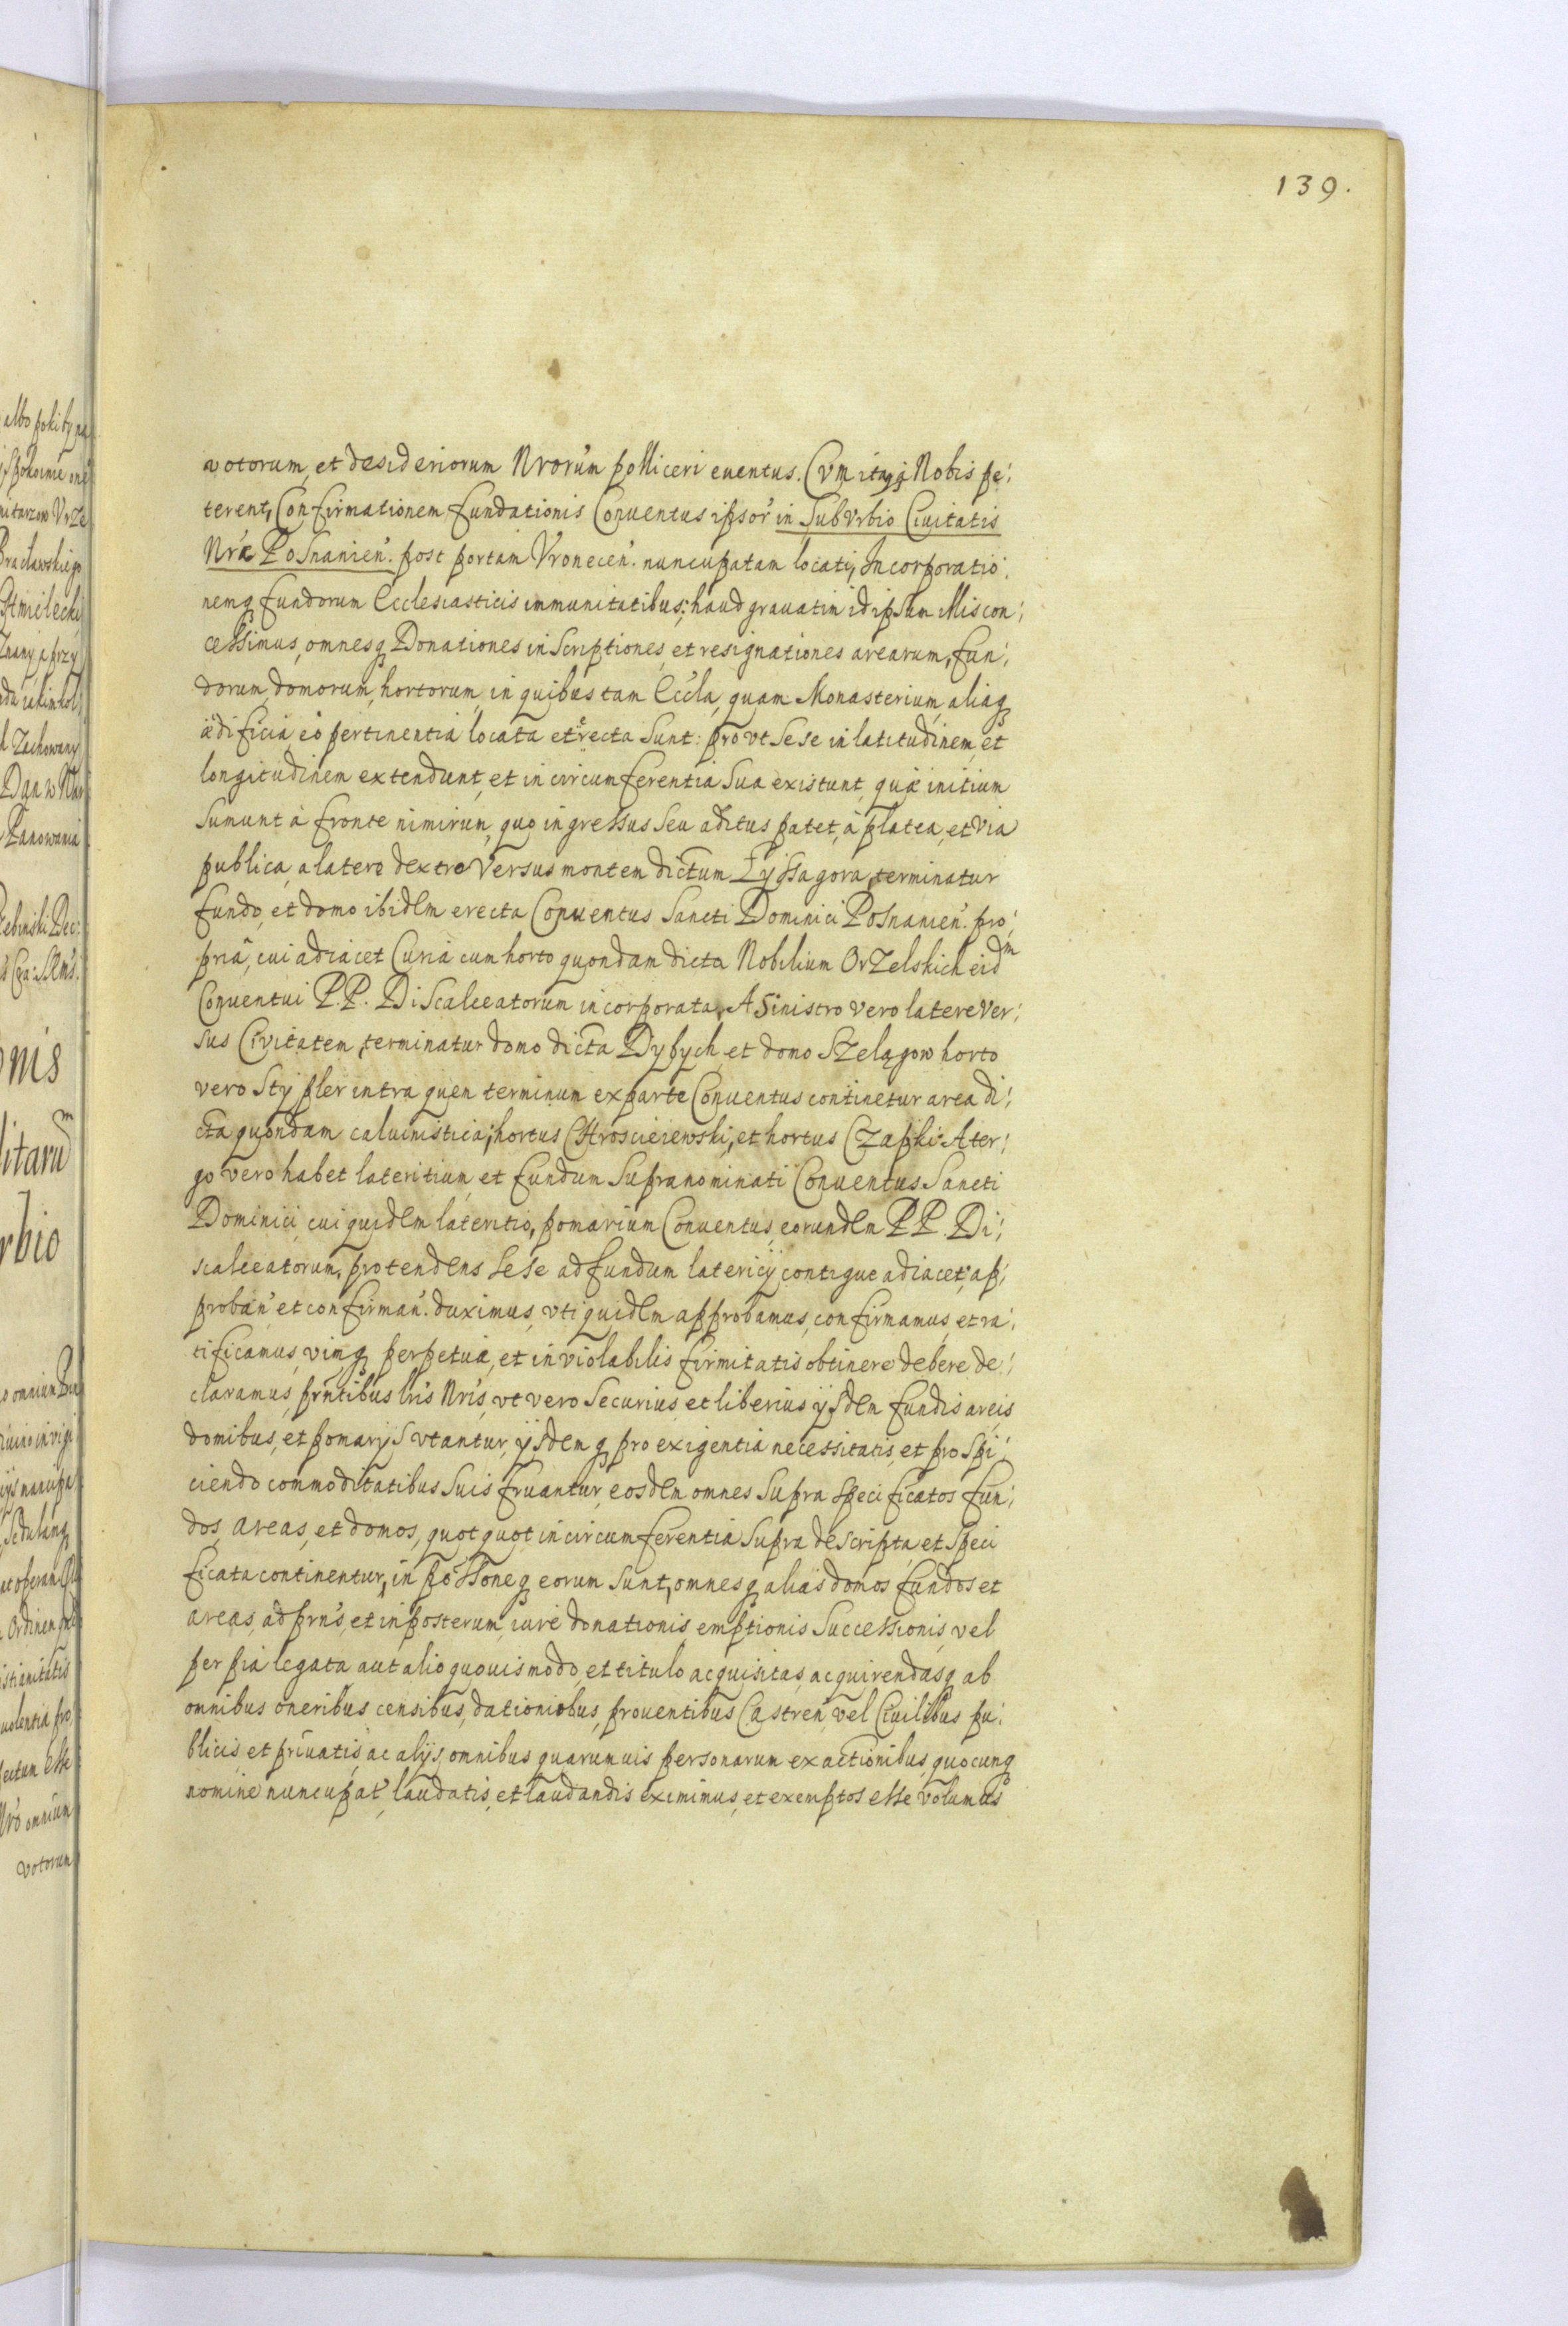 139.
votorum, et desideriorum Nrorum polliceri euentus. Cvm itaq Nobis pe:
terent, Confirmationem Fundationis Conuentus ipsor in SubVrbio Ciuitatis
Nræ Posnanien. post portam Vronecen. nuncupatam locati, Incorporatio:
nemq fundorum Ecclesiasticis immunitatibus; haud grauatim id ipsum illis con:
cessimus, omnesq Donationes inscriptiones, et resignationes arearum, fun:
dorum, domorum, hortorum, in quibus tam Eccla, quam Monasterium, aliaq
ædificia eo pertinentia locata et erecta sunt: prout sese in latitudinem, et
longitudinem extendunt, et in circumferentia sua existunt, quæ initium
sumunt à fronte nimirum, quo ingressus seu aditus patet, à platea, et via
publica, a latere dextro versus montem dictum Łyssagora, terminatur
fundo, et domo ibidem erecta Conuentus Sancti Dominici Posnanien. pro:
pria, cui adiacet Curia cum horto quondam dicta Nobilium Orzelskich eidm
Conuentui P.P. Discalceatorum incorporata, A Sinistro vero latere ver:
sus Civitatem, terminatur domo dicta Dyfych, et domo Szelągow horto
vero Styfler intra quem terminum ex parte Conuentus continetur area di:
cta quondam caluinistica; hortus Chroscieiewski, et hortus Czapki A ter:
go vero habet lateritium, et fundum supranominati Conuentus Sancti
Dominici, cui quidem lateritio, pomarium Conuentus, eorundem P.P. Di:
scalceatorum, protendens sese ad fundum latericij contigue adiacet, ap:
proban, et confirman. duximus, vti quidem approbamus, confirmamus, et ra:
tificamus, vimq perpetuæ, et inviolabilis firmitatis obtinere debere de:
claramus, prntibus lris Nris, vt vero securius, et liberius ijsdem fundis areis
domibus, et pomarijs vtantur, ijsdemq pro exigentia necessitatis, et prospi:
ciendo commoditatibus suis fruantur, eosdem omnes supra specificatos fun:
dos, areas, et domos, quotquot in circumferentia supra descripta, et speci
ficata continentur, in possoneq eorum sunt, omnesq alias domos fundos et
areas, ad prns, et in posterum, iure donationis emptionis Successionis, vel
per pia legata aut alio quouis modo, et titulo acquisitas, acquirendasq ab
omnibus oneribus censibus, dationibus, prouentibus Castren, vel Ciuilibus pu:
blicis, et priuatis, ac alijs, omnibus quarumuis personarum exactionibus, quocunq
nomine nuncupat, laudatis, et laudandis eximimus, et exemptos esse volumus